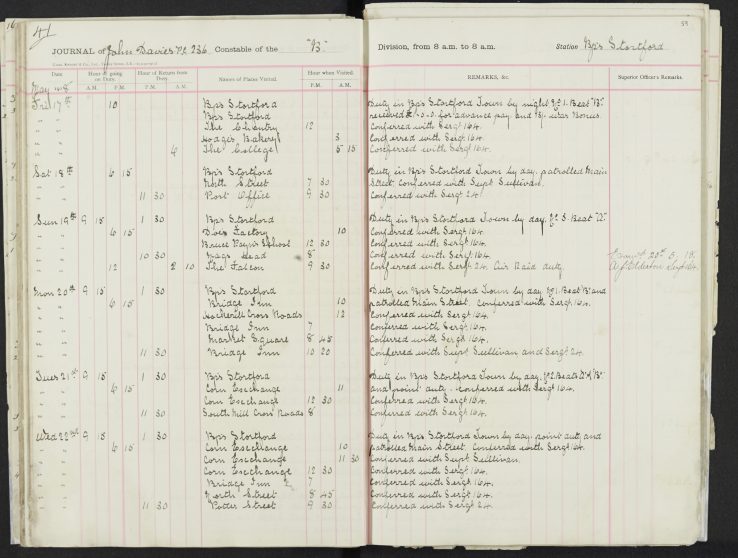 16
41
55
JOURNAL of John Davies P.C. 236 Constable of the "B" Division, from 8 a.m. to 8 a.m. Station Bp's Stortford
Date Hour of going on Duty. Hour of Return from Duty Names of Places Visited. Hour when Visited. REMARKS, &c. Superior Officer's Remarks.
A.M. P.M. P.M. A.M. P.M. A.M.
May 1918
Fri 17th 10 Bp's Stortford Duty in Bp's Stortford Town by night No 1. Beat "B"
" " Bp's Stortford received for advance pay and war Bonus.
" " The Chantry 12 Conferred with Sergt 164.
" " Hodges Bakery 3 Conferred with Sergt 164.
" " 6 The College 5 15 Conferred with Sergt 164.
Sat 18th 6 15 Bp's Stortford Duty in Bp's Stortford Town by day. patrolled Main
" " North Street 7 30 Street. Conferred with Supt Sullivan.
" " 11 30 Post Office 9 30 Conferred with Sergt 24.
Sun 19th 9 15 1 30 Bp's Stortford Duty in Bp's Stortford Town by day. Beat "A"
" " 6 15 Factory 10 Conferred with Sergt 164.
" " School 12 30 Conferred with Sergt 164.
" " 10 30 Nags Head 8 Conferred with Sergt 164.
" " 12 2 10 The Falcon 9 30 Conferred with Sergt 24. Air Raid duty.
20th 5. 18.
Mon 20th 9 15 1 30 Bp's Stortford Duty in Bp's Stortford Town by day No 1. Beat "B" and
" " 6 15 Bridge Inn 10 patrolled Main Street. Conferred with Sergt 164.
" " Hockerill Cross Roads 12 Conferred with Sergt 164.
" " Bridge Inn 7 Conferred with Sergt 164.
" " Market Square 8 45 Conferred with Sergt 164.
" " 11 30 Bridge Inn 10 20 Conferred with Supt Sullivan and Sergt 24.
Tues 21st 9 15 1 30 Bp's Stortford Duty in Bp's Stortford Town by day.
" " 6 15 Corn Exchange 11 and point duty. Conferred with Sergt 164.
" " Corn Exchange 12 30 Conferred with Sergt 164.
" " 11 30 South Mill Cross Roads 8 Conferred with Sergt 164.
Wed 22nd 9 15 1 30 Bp's Stortford Duty in Bp's Stortford Town by day. point duty and
" " 6 15 Corn Exchange 10 patrolled Main Street. Conferred with Sergt 164.
" " Corn Exchange 11 30 Conferred with Supt Sullivan.
" " Corn Exchange 12 30 Conferred with Sergt 164.
" " Bridge Inn 7 Conferred with Sergt 164.
" " North Street 8 45 Conferred with Sergt 164.
" " 11 30 Potter Street 9 30 Conferred with Sergt 24.